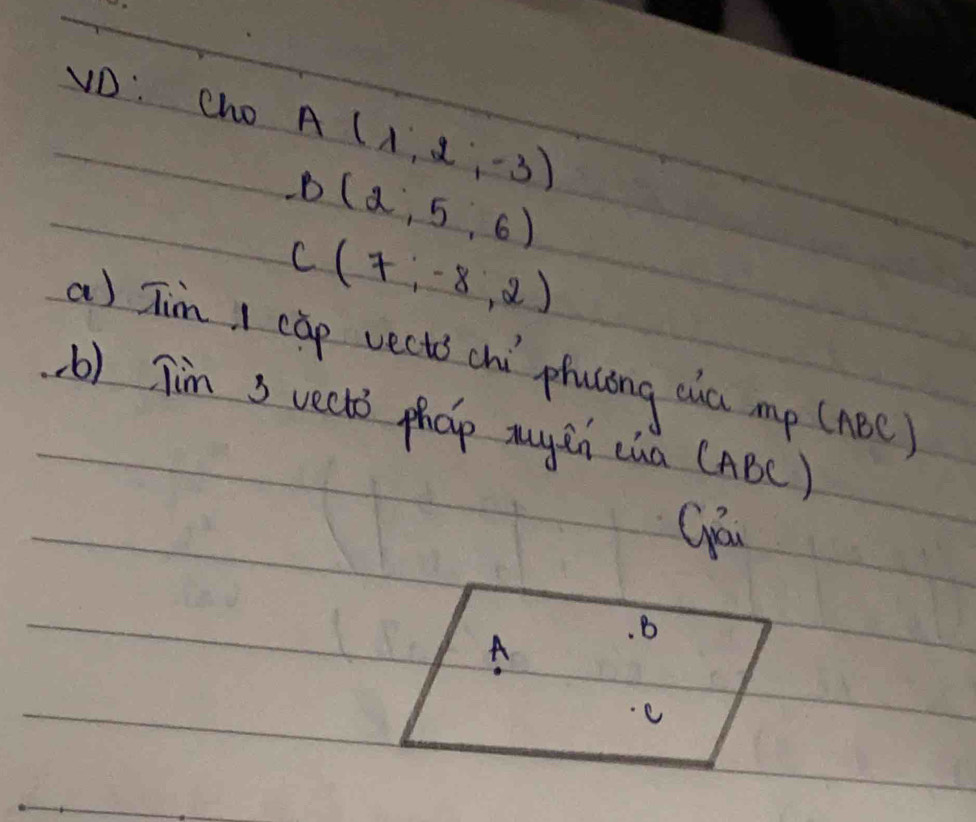 VD: Cho A (1; 2; -3)
B (2; 5; 6)
C (7; -8; 2)
a) Tìm 1 cặp vectơ chỉ phương của mp (ABC)
b) Tìm 3 vectơ pháp tuyến của (ABC)
Giải
A
.B
.C